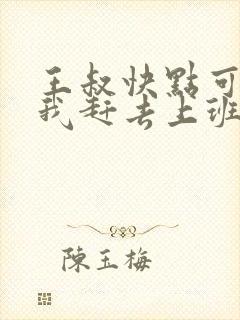 王叔快點可
我赶去上班
陳玉梅